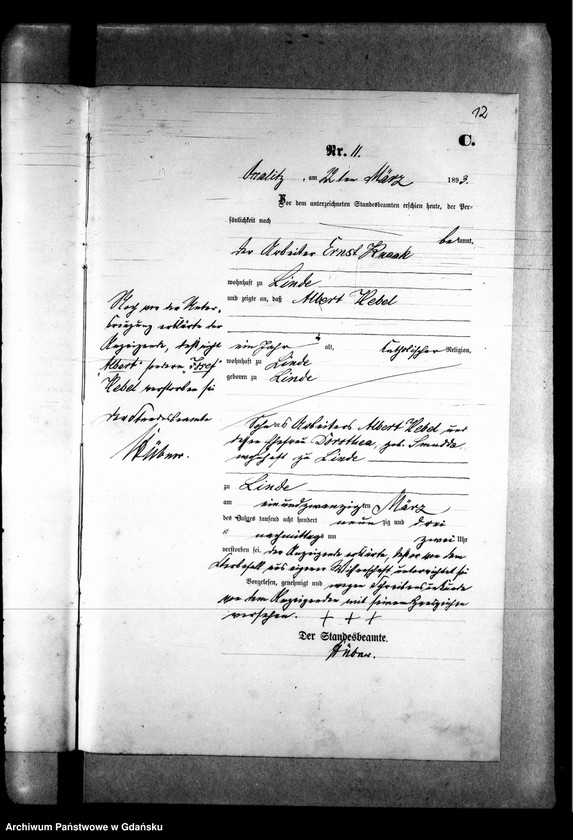 12
C.
Nr. 11.
am 22ten März 1893.
Vor dem unterzeichneten Standesbeamten erschien heute, der Per-
sönlichkeit nach
bekannt,
der Arbeiter Ernst Knaak
wohnhaft zu Linde
und zeigte an, daß Albert Hebel
ein Jahr alt, katholischer Religion,
wohnhaft zu Linde
geboren zu Linde
Sohn des Arbeiters Albert Hebel und
dessen Ehefrau Dorothea, geb. Smudda
wohnhaft zu Linde
zu Linde
am einundzwanzigsten März
des Jahres tausend acht hundert neunzig und drei
nachmittags um zwei Uhr
verstorben sei. Der Anzeigende erklärte, daß er von dem
Sterbefall aus eigener Wissenschaft unterrichtet sei
Vorgelesen, genehmigt und wegen Schreibensunkunde
von dem Anzeigenden mit seinem Handzeichen
versehen. + + +
Der Standesbeamte.
Hübner.
Noch vor der Unter-
erklärte der
Anzeigende, daß nicht
"Albert" sondern "Josef"
Hebel verstorben sei
Der Standesbeamte
Hübner.
Archiwum Państwowe w Gdańsku